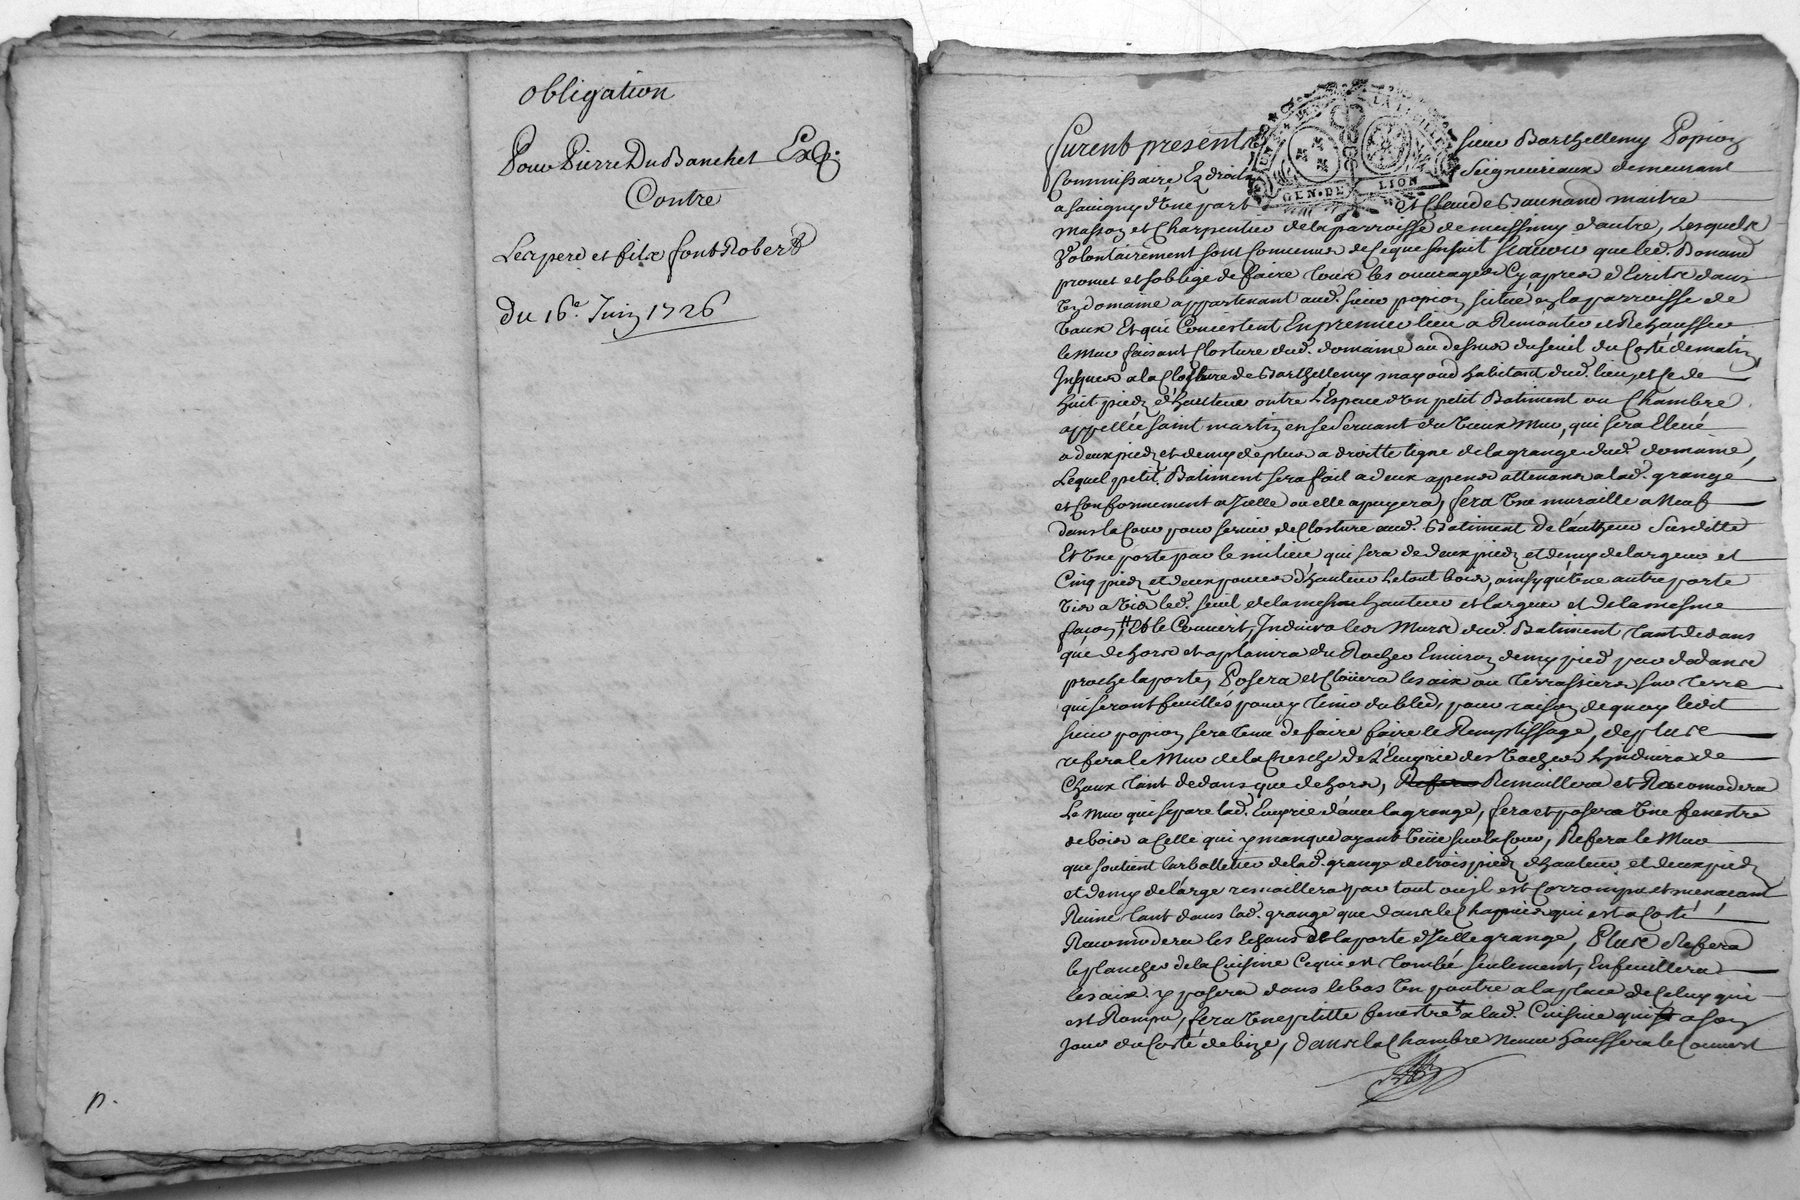 obligation
Pour Pierre Du Banchet Exp.
Contre
Les pere et fils font Robert
du 16e. Juin 1726
n.
GEN. DE LION
Furent presents sieur Barthellemy Popion
Commissaire Ez droits Seigneuriaux demeurant
a Savigny d'Une part et Claude Baunand maitre
masson et Charpentier de la parroisse de messimy d'autre, Lesquels
Volontairement sont Convenus de Ce que sensuit scavoir que led. Bonand
promet et soblige de faire Tous les ouvrages Cy apres d'Ecrits dans
Un domaine appartenant aud. sieur popion situé en la parroisse de
Vaux Et qui Concistent En premier lieu a Remonter et Rehausser
le Mur faisant Closture dud. domaine au dessus du seuil du Costé de matin
Jusques a la Closture de Barthellemy mayoud habitant dud. lieu, et Ce de
Huit pieds d'Hauteur outre L'Espace d'Un petit Batiment ou Chambre
appellée saint martin en se servant du Vieux Mur, qui sera Elevé
a deux pieds et demy de plus a droitte ligne de la grange dud. domaine,
Lequel petit Batiment sera fait a deux apens attenans a lad. grange
et Conformement a Icelle ou elle apuyera, fera Une muraille a Neuf
dans la Cour pour servir de Closture aud. Batiment de lauteur Susditte
Et Une porte par le milieu qui sera de deux pieds et demy de largeur et
Cinq pieds et deux pouces d'Hauteur le tout bois, ainsy qu'Une autre porte
Vis a Vis led. seuil de la mesme hauteur et largeur et de la mesme
façon, # Et le Couvert, Induira les Murs dud. Batiment Tant dedans
que dehors et aplanira du Rocher Environ demy pied par dedans
proche la porte, Posera et Cloüera les aix ou Terrassiers sur Terre
qui seront feuillés pour y Tenir du bled, pour raison de quoy ledit
sieur popion sera Tenu de faire faire le Remplissage, de plus
refera le Mur de la Cresche de L'Ecurie des Vaches Lynduira de
Chaux Tant dedans que dehors, Refera Remaillera et Racomodera
Le Mur qui separe lad. Ecurie d'avec la grange, fera et posera Une fenestre
de bois a Celle qui y manque ayant Vüe sur la Cour, Refera le Mur
que soutient larballetier de lad. grange de trois pieds d'hauteur et deux pieds
et demy de large remaillera par tout ou il est Corrompu et menacant
Ruine Tant dans lad. grange que dans le Chapuis qui est a Costé,
Racomodera les Echans de la porte d'Jcelle grange, Plus Refera
le plancher de la Cuisine Ce qui est Tombé seulement, Enfeuillera
les aix y posera dans le bas Un poutre a la place de Celuy qui
est Rompu, fera Une petitte fenestre + a lad. Cuisine qui a son
jour du Costé de bize, dans la Chambre Neuve haussera le Couvert